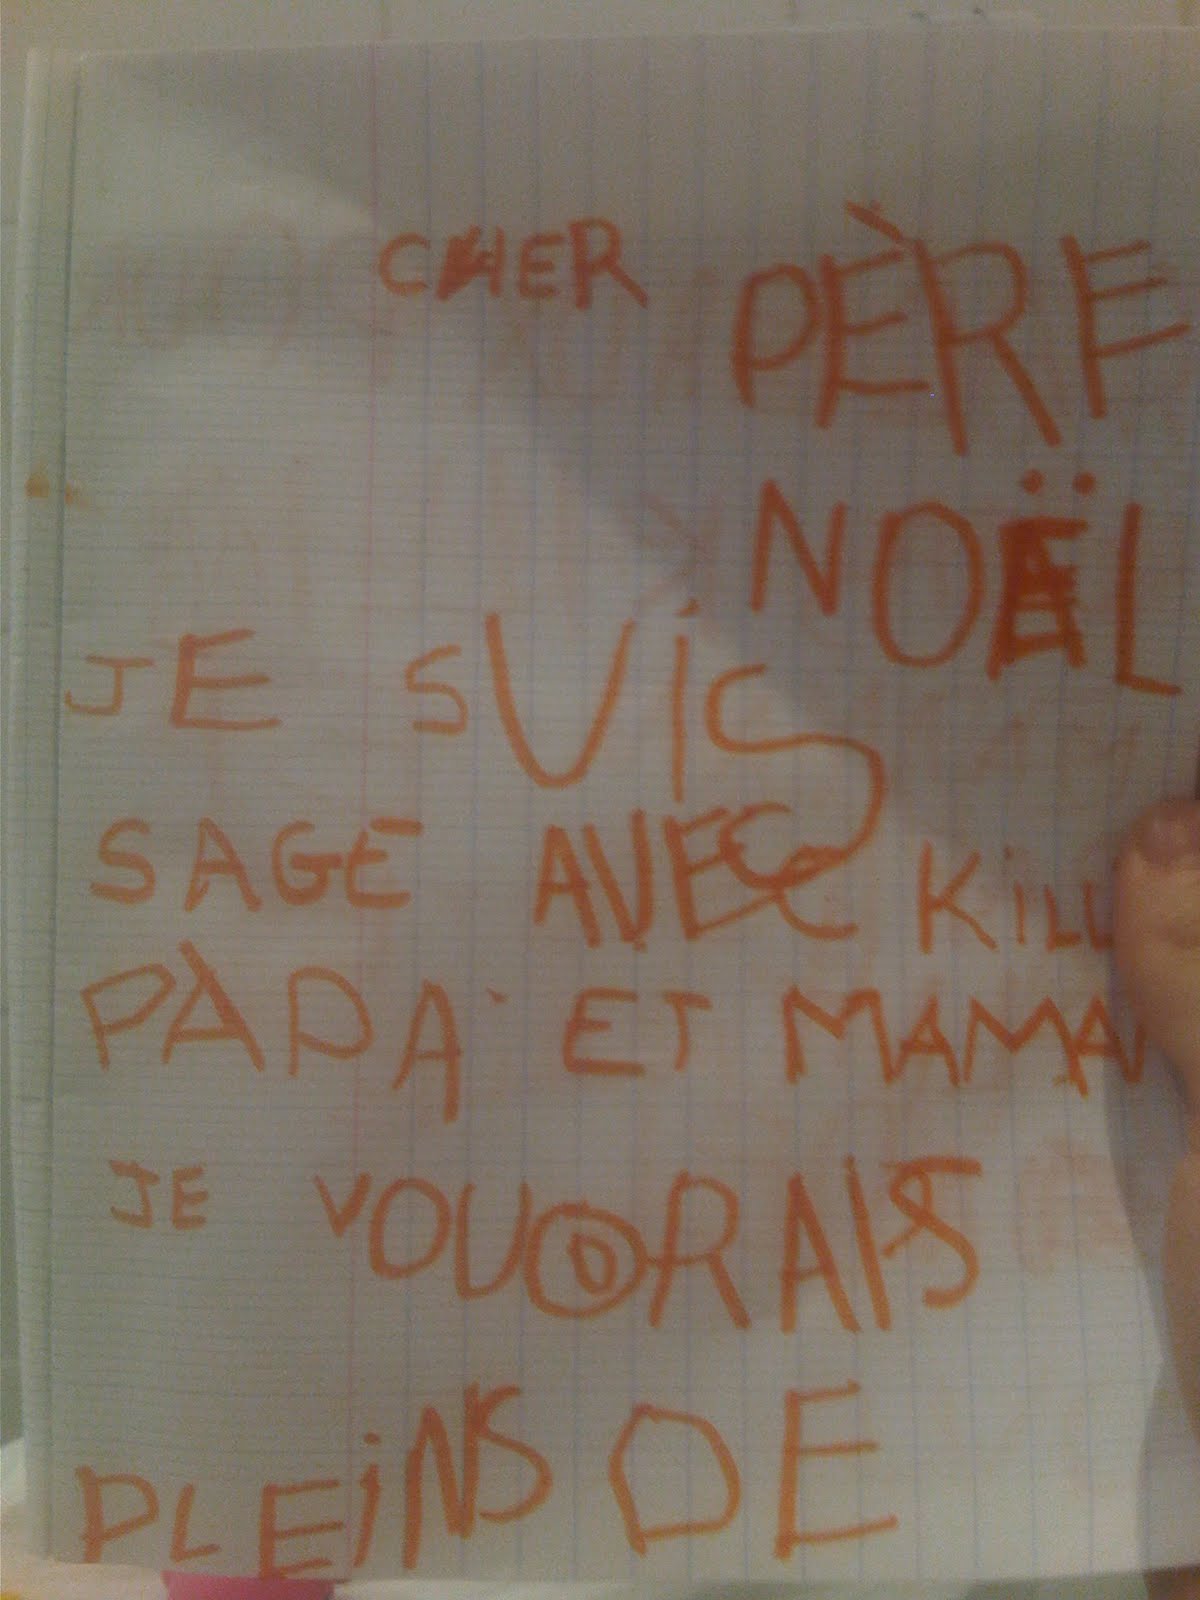 CHER PÈRE
NOËL
JE SUiS
SAGE AVEC KiLL
PAPA ET MAMAN
JE VOUDRAIS
PLEiNS DE